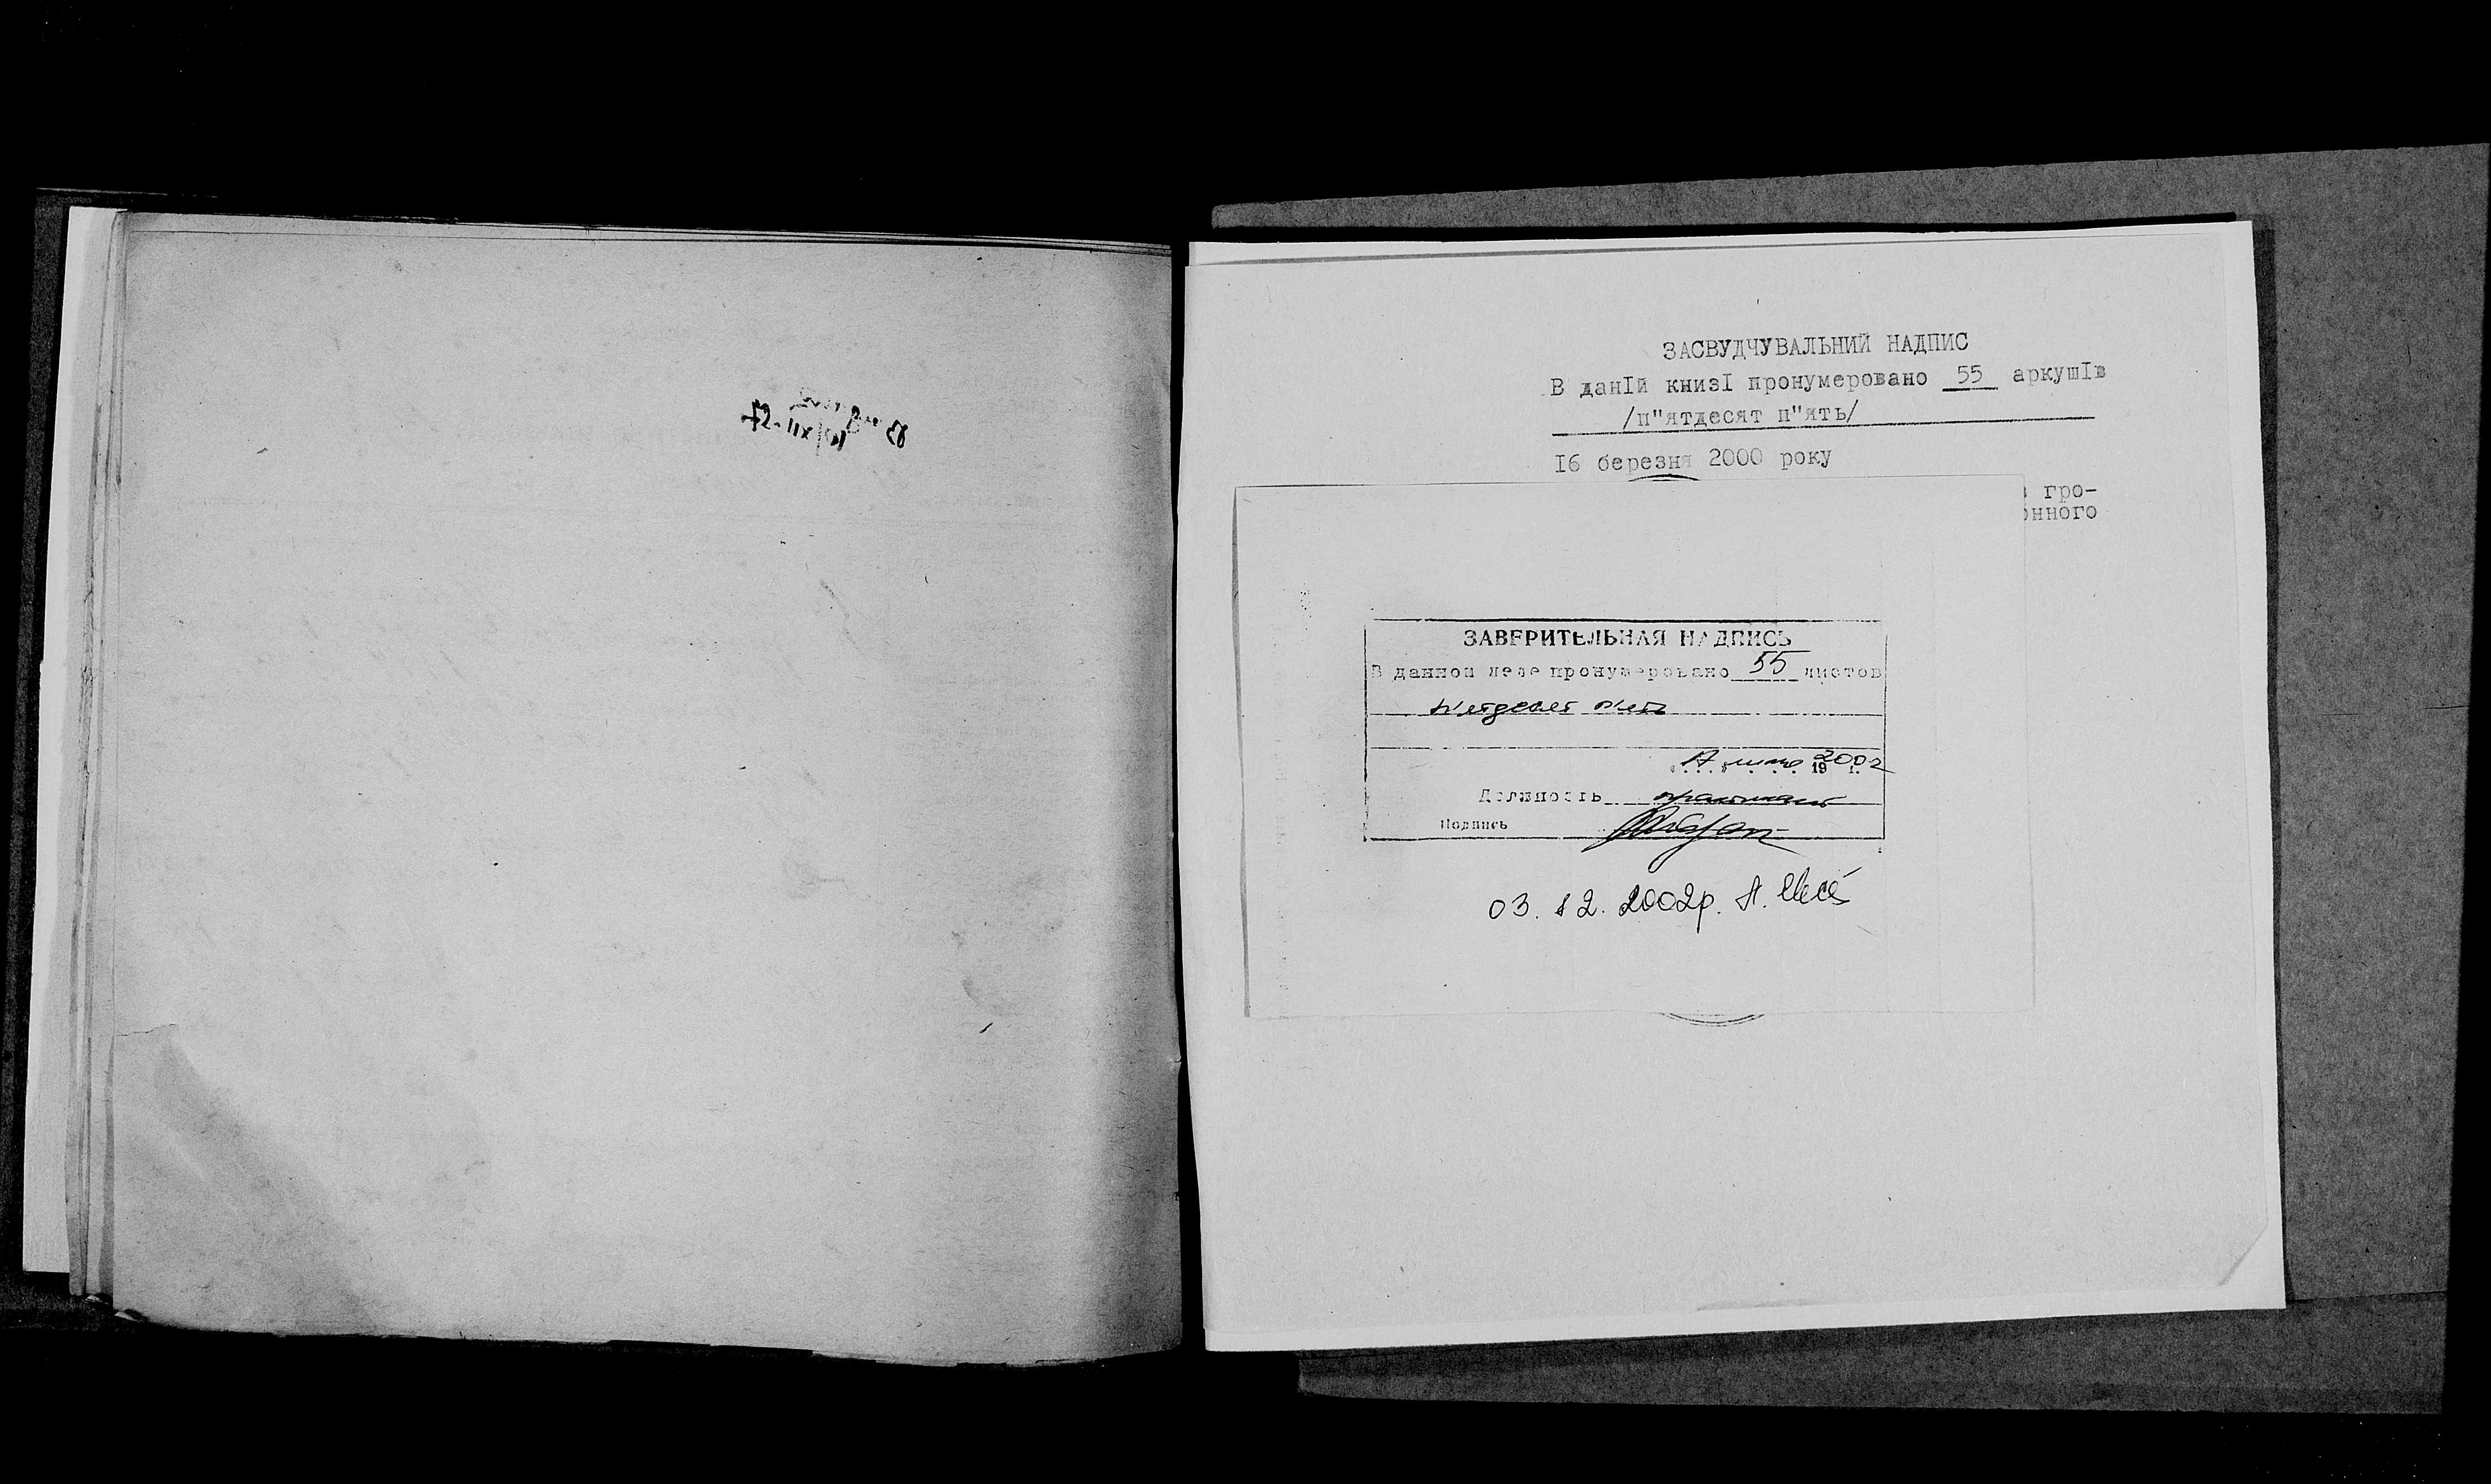 ЗАСВУДЧУВАЛЬНИЙ НАДПИС
В данІй книзІ пронумеровано 55 аркушІв
/п"ятдесят п"ять/
І6 березня 2000 року
гро-
онного
ЗАВЕРИТЕЛЬНАЯ НАДПИСЬ
В данном деле пронумеровано 55 листов
п'ятдесят п'ять
17 2002
19 г.
Должность
Подпись
03. 12. 2002р. А.